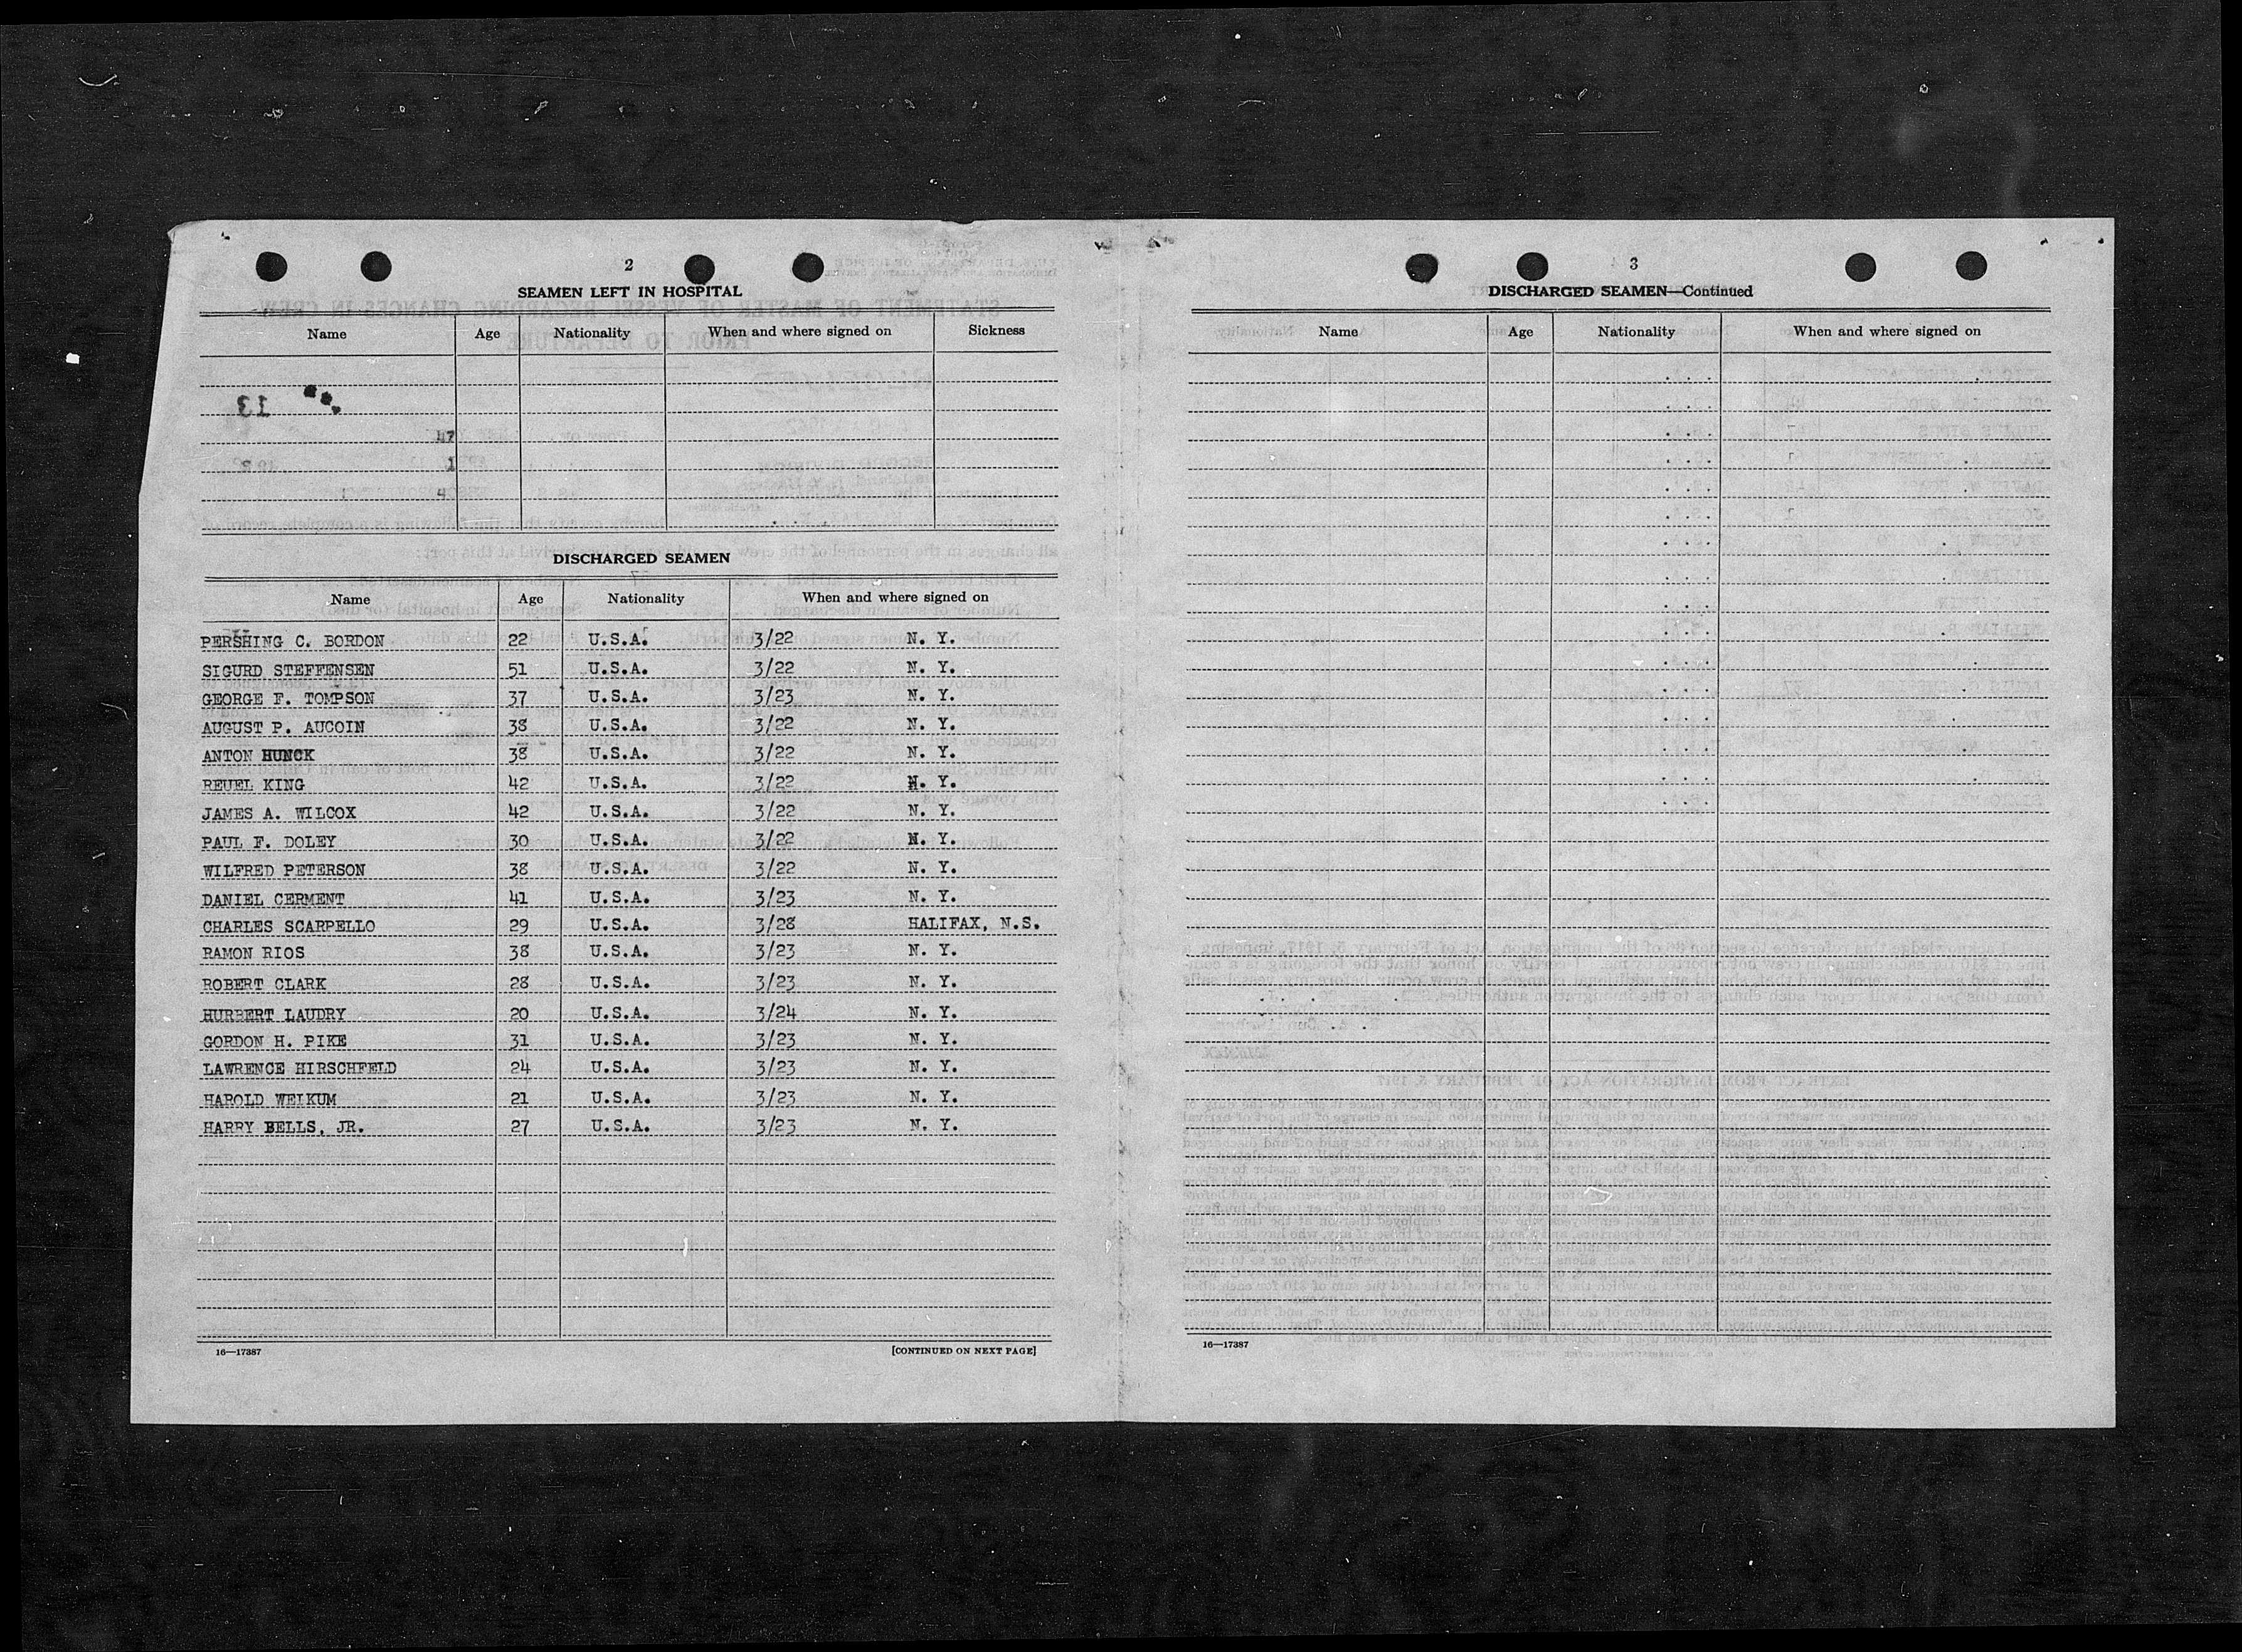 2
SEAMEN LEFT IN HOSPITAL
Name Age Nationality When and where signed on Sickness
DISCHARGED SEAMEN
Name Age Nationality When and where signed on
PERSHING C. BORDON 22 U.S.A. 3/22 N. Y.
SIGURD STEFFENSEN 51 U.S.A. 3/22 N. Y.
GEORGE F. TOMPSON 37 U.S.A. 3/23 N. Y.
AUGUST P. AUCOIN 38 U.S.A. 3/22 N. Y.
ANTON HUNCK 38 U.S.A. 3/22 N. Y.
REUEL KING 42 U.S.A. 3/22 N. Y.
JAMES A. WILCOX 42 U.S.A. 3/22 N. Y.
PAUL F. DOLEY 30 U.S.A. 3/22 N. Y.
WILFRED PETERSON 38 U.S.A. 3/22 N. Y.
DANIEL CERMENT 41 U.S.A. 3/23 N. Y.
CHARLES SCARPELLO 29 U.S.A. 3/28 HALIFAX, N.S.
RAMON RIOS 38 U.S.A. 3/23 N. Y.
ROBERT CLARK 28 U.S.A. 3/23 N. Y.
HURBERT LAUDRY 20 U.S.A. 3/24 N. Y.
GORDON H. PIKE 31 U.S.A. 3/23 N. Y.
LAWRENCE HIRSCHFELD 24 U.S.A. 3/23 N. Y.
HAROLD WEIKUM 21 U.S.A. 3/23 N. Y.
HARRY BELLS, JR. 27 U.S.A. 3/23 N. Y.
16—17387 [CONTINUED ON NEXT PAGE]
3
DISCHARGED SEAMEN—Continued
Name Age Nationality When and where signed on
16—17387